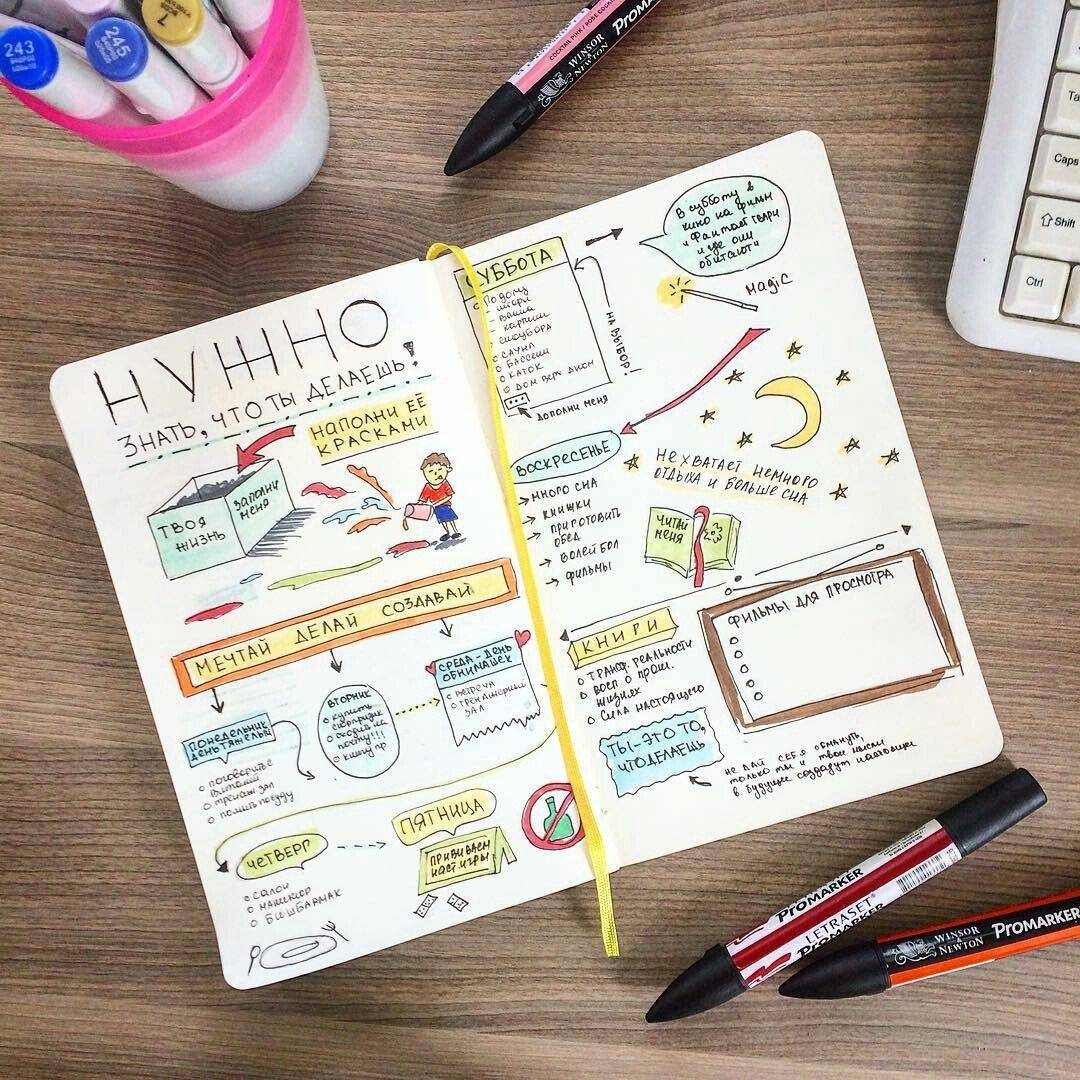 243
245
7
WINSOR & NEWTON
PROMARKER
COCKTAIL PINK / ROSE COCKTAIL
Caps
Shift
Ctrl
НУЖНО
ЗНАТЬ, ЧТО ТЫ ДЕЛАЕШЬ!
НАПОЛНИ ЕЁ
КРАСКАМИ
ТВОЯ
ЖИЗНЬ
ЗАПОЛНИ
МЕНЯ
МЕЧТАЙ ДЕЛАЙ СОЗДАВАЙ
ПОНЕДЕЛЬНИК
ДЕНЬ ТЯЖЕЛЫЙ
поговорить с
Виталей
тренаж зал
помыть посуду
ВТОРНИК
купить
сюрпризик
сходить на
почту!!!
СРЕДА - ДЕНЬ
ОБНИМАШЕК
встреча
тренажерный
зал
ЧЕТВЕРГ
салон
маникюр
БИШБАРМАК
ПЯТНИЦА
ПРИВИВАЕМ
НАСТ ИГРЫ
СУББОТА
Подому
- шторы
- ванна
- картины
сноуборд
САУНА
БАССЕЙН
КАТОК
ДОМ ВЕРХ ДНОМ
НА ВЫБОР!
...
ДОПОЛНИ МЕНЯ
В субботу в
кино на фильм
"Фантаст твари
и где они
обитают"
MAGIC
ВОСКРЕСЕНЬЕ
МНОГО СНА
КНИЖКИ
ПРИГОТОВИТЬ
ОБЕД
ВОЛЕЙБОЛ
ФИЛЬМЫ
НЕ ХВАТАЕТ НЕМНОГО
ОТДЫХА И БОЛЬШЕ СНА
ЧИТАЙ
МЕНЯ
КНИГИ
ТРАНСФ. РЕАЛЬНОСТИ
ВОСП О ПРОШ.
ЖИЗНЯХ
СИЛА НАСТОЯЩЕГО
ФИЛЬМЫ ДЛЯ ПРОСМОТРА
ТЫ - ЭТО ТО,
ЧТО ДЕЛАЕШЬ
НЕ ДАЙ СЕБЯ ОБМАНУТЬ,
ТОЛЬКО ТЫ И ТВОИ МЫСЛИ
В БУДУЩЕЕ СОЗДАДУТ НАСТОЯЩЕЕ
PROMARKER
LETRASET
PROMARKER
WINSOR & NEWTON
PROMARKER